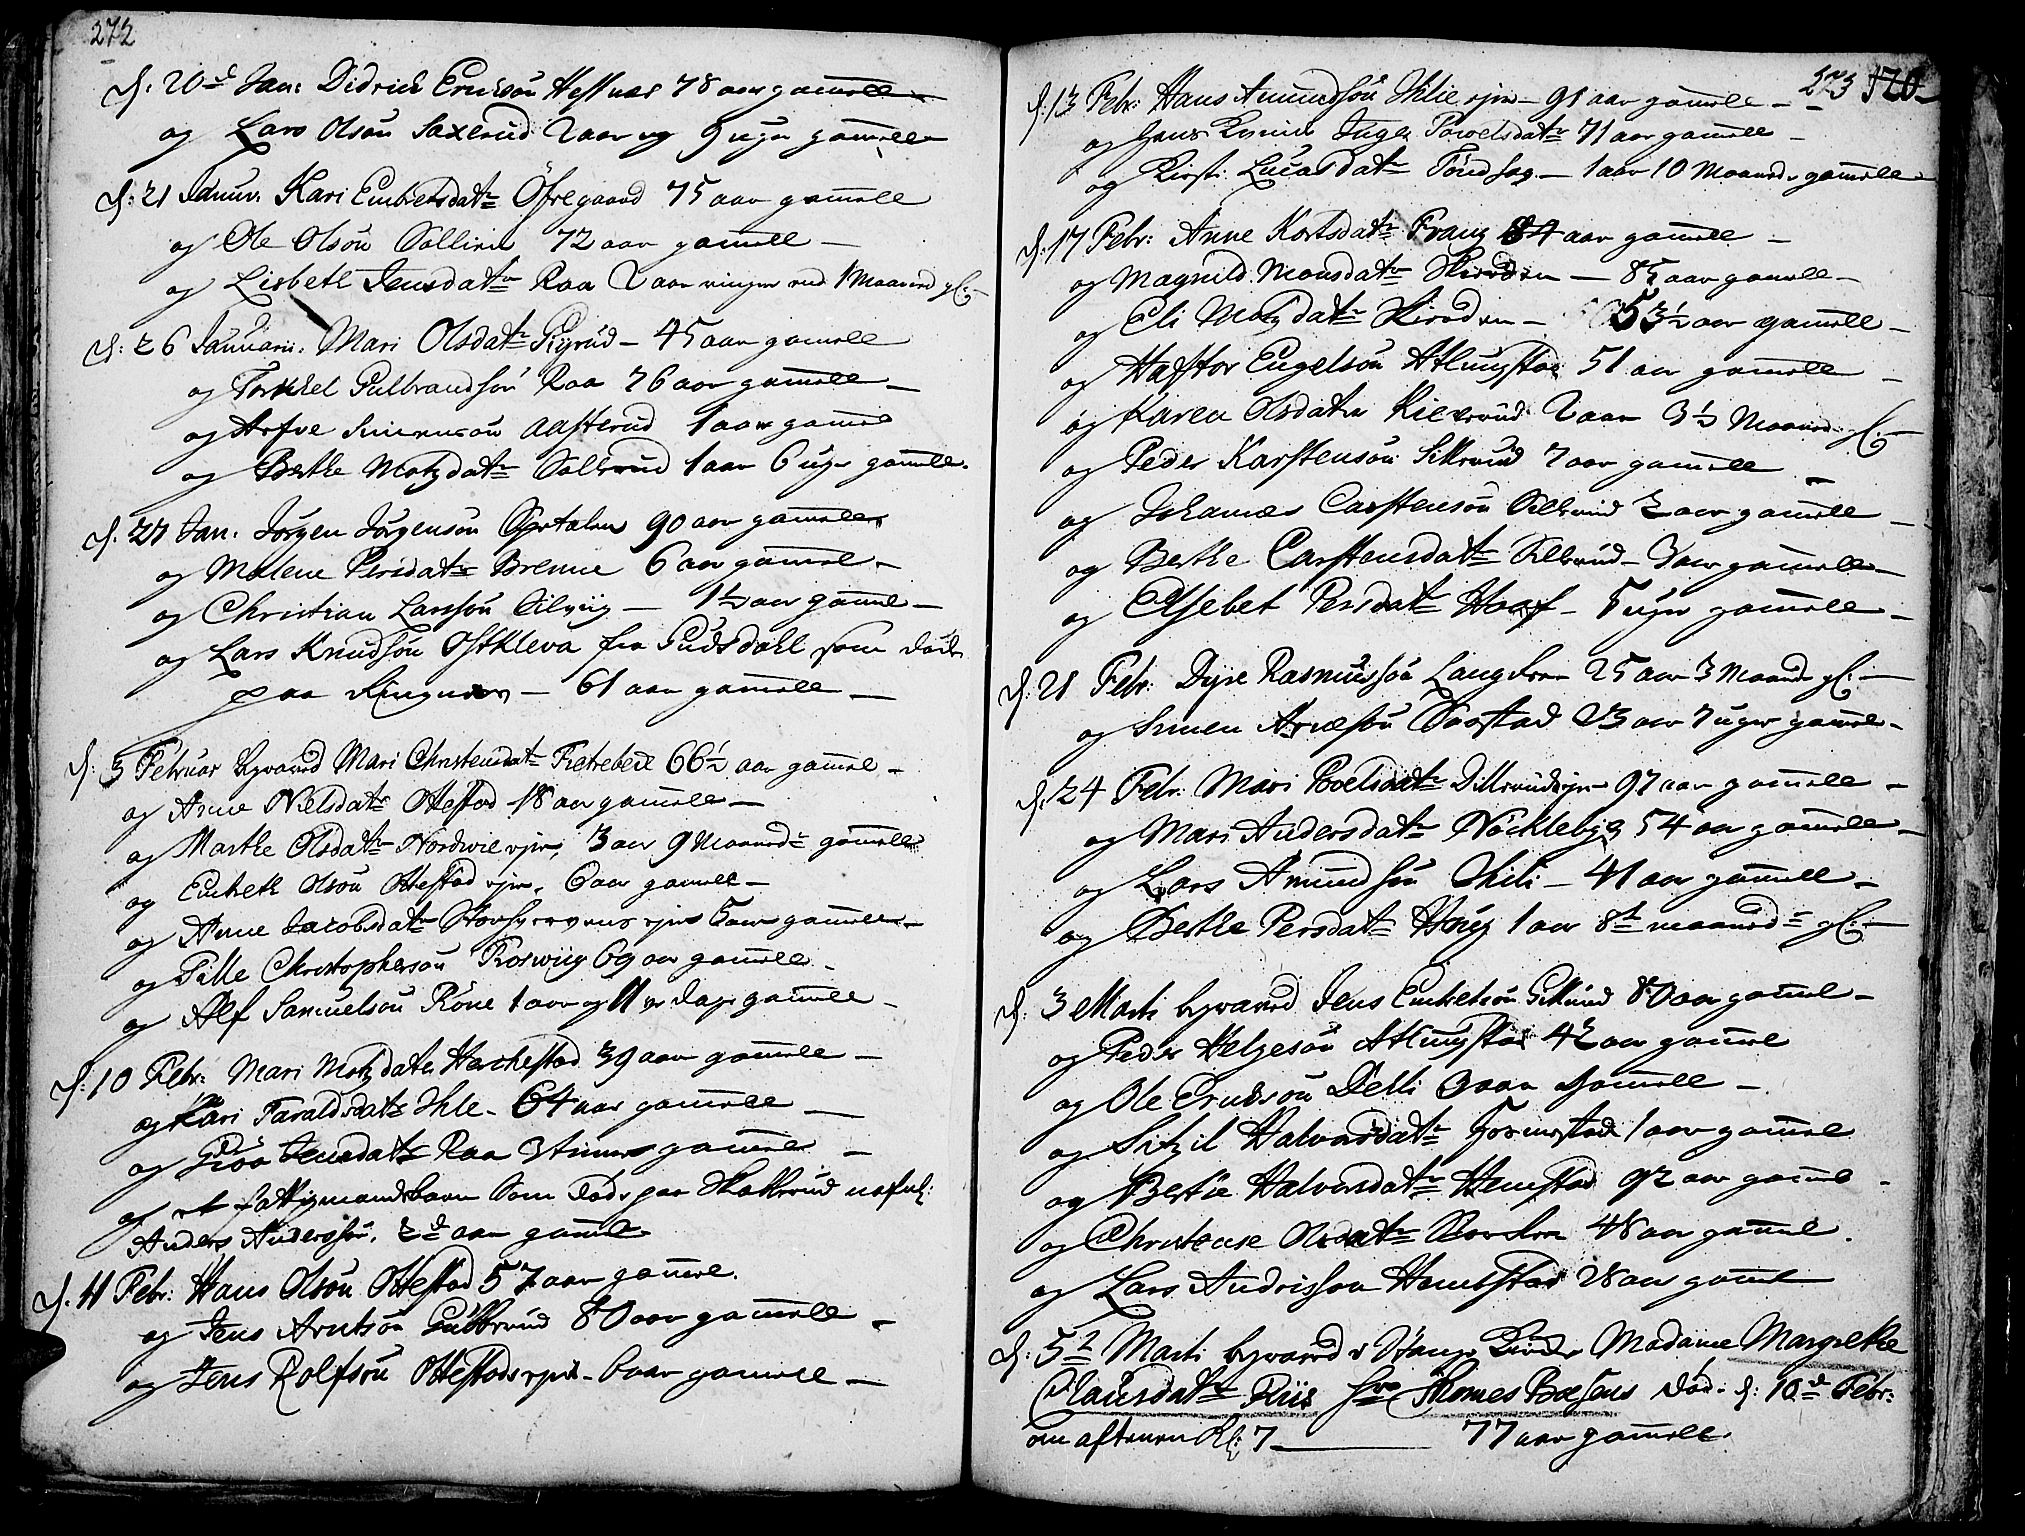 272
d: 20d Jan: Didrich Erichsøn Hestnæs 78 aar gamell
og Lars Olsøn Saxerud 2 aar og 9 uger gamell
d: 21 Januar. Kari Embretsdatr Øfregaard 75 aar gamell
og Ole Olsøn Sollien 72 aar gamell —
og Lisbeth Jensdatr Raa 2 aar ringer end 1 Maaned gl: —
d: 26 Januari. Mari Olsdatr — 45 aar gamell
og Torkel Gulbrandsøn Raa 76 aar gamell —
og Arfve Simensøn Aasterud 1 aar gamel
og Berthe Matzdatr Sollerud 1 aar 6 uger gamell.
d: 27 Jan: Jørgen Jørgensøn Opertalen 90 aar gamell
og Malene Persdatr Brenne 6 aar gamel —
og Christian Larssøn Silvig — 1½ aar gamel —
og Lars Knudsøn Ostkleva fra Gudsdahl som døde
paa — 61 aar gamell —
d: 3 Februar bgraved Mari Christensdatr 66½ aar gamel —
og Anne Nielsdatr Ottestad 18 aar gamell —
og Marthe Olsdatr Nordvie ejer, 3 aar 9 Maaneder gamell
og Embreth Olsøn Ottestad ejer. 6 aar gamell —
og Anne Jacobsdatr ejer 5 aar gamell —
og Pelle Christophersøn Rosviig 69 aar gamell —
og Alf Samuelsøn Røne 1 aar og 11 dage gamell —
d: 10 Febr: Mari Matzdatr Harchestad 39 aar gamell —
og Kari Taraldsdatr Ihle — 64 aar gamell —
og Jensdatr Raa 3 timers gamel —
og et fattigmandsbarn som døde paa Skatterud nafnl:
Anders Anderssøn, 2d aar gamel
d: 11 Febr: Hans Olsøn Ottestad 57 aar gamel.
og Jens Arntsøn Gubberud 80 aar gamell —
og Jens Rolfsøn Ottestads ejed — 6 aar gamell —
273 120
d: 13 Febr: Hans Amundsøn Ihlie ejer — 91 aar gamell —
og hans Konne Inger Povelsdatr 71 aar gamell —
og Kirsti Lucasdatr Tøndsag — 1 aar 10 Maaneder gamell
d: 17 Febr: Anne Kortsdatr Frang 84 aar gamell —
og Magnild Monsdatr Skiødsen — 85 aar gamell —
og Eli Matzdatr Skiødsen — 53½ aar gamell —
og Hafstor Engelsøn Atlungstad 51 aar gamell —
og Karen Olsdatr Kiexerud 2 aar 3½ Maaned gl: —
og Peder Karstensøn Sillerud 7 aar gamell —
og Johannes Carstensøn Sillerud 2 aar gamell —
og Berthe Carstensdatr Sillerud — 3 aar gamell —
og Elsebet Persdatr Hoof — 5 uger gamell —
d: 21 Febr: Dyre Rasmussøn 25 aar 3 Maaned gl: —
og Simen Arnesøn 23 aar 7 uger gamel —
d: 24 Febr: Mari Povelsdatr Dillerudejer 97 aar gamell —
og Mari Andersdatr Nøcklebye 54 aar gamell —
og Lars Amundsøn Ihli — 41 aar gamell —
og Berthe Persdatr Houg 1 aar 8t maaneder gl: —
d: 3 Marti bgraved Jens Embretsøn Gillund 80 aar gamel —
og Peder Helgesøn Atlungstad 42 aar gamel
og Ole Erichsøn Delli 3 aar gamell —
og Sitzil Halvorsdatr Hornestad 1 aar gamel
og Bertie Halvorsdatr Hemstad 92 aar gamel —
og Christense Olsdatr 48 aar gamel.
og Lars Andrissøn Hemstad 28 aar gamel
d: 5te Marti bgraved i Stange Kirche Madame Margrethe
Clausdatr Friis Sr Thomes Boesens død. d: 10d Febr:
om aftenen Kl: 7 — 77 aar gamell.